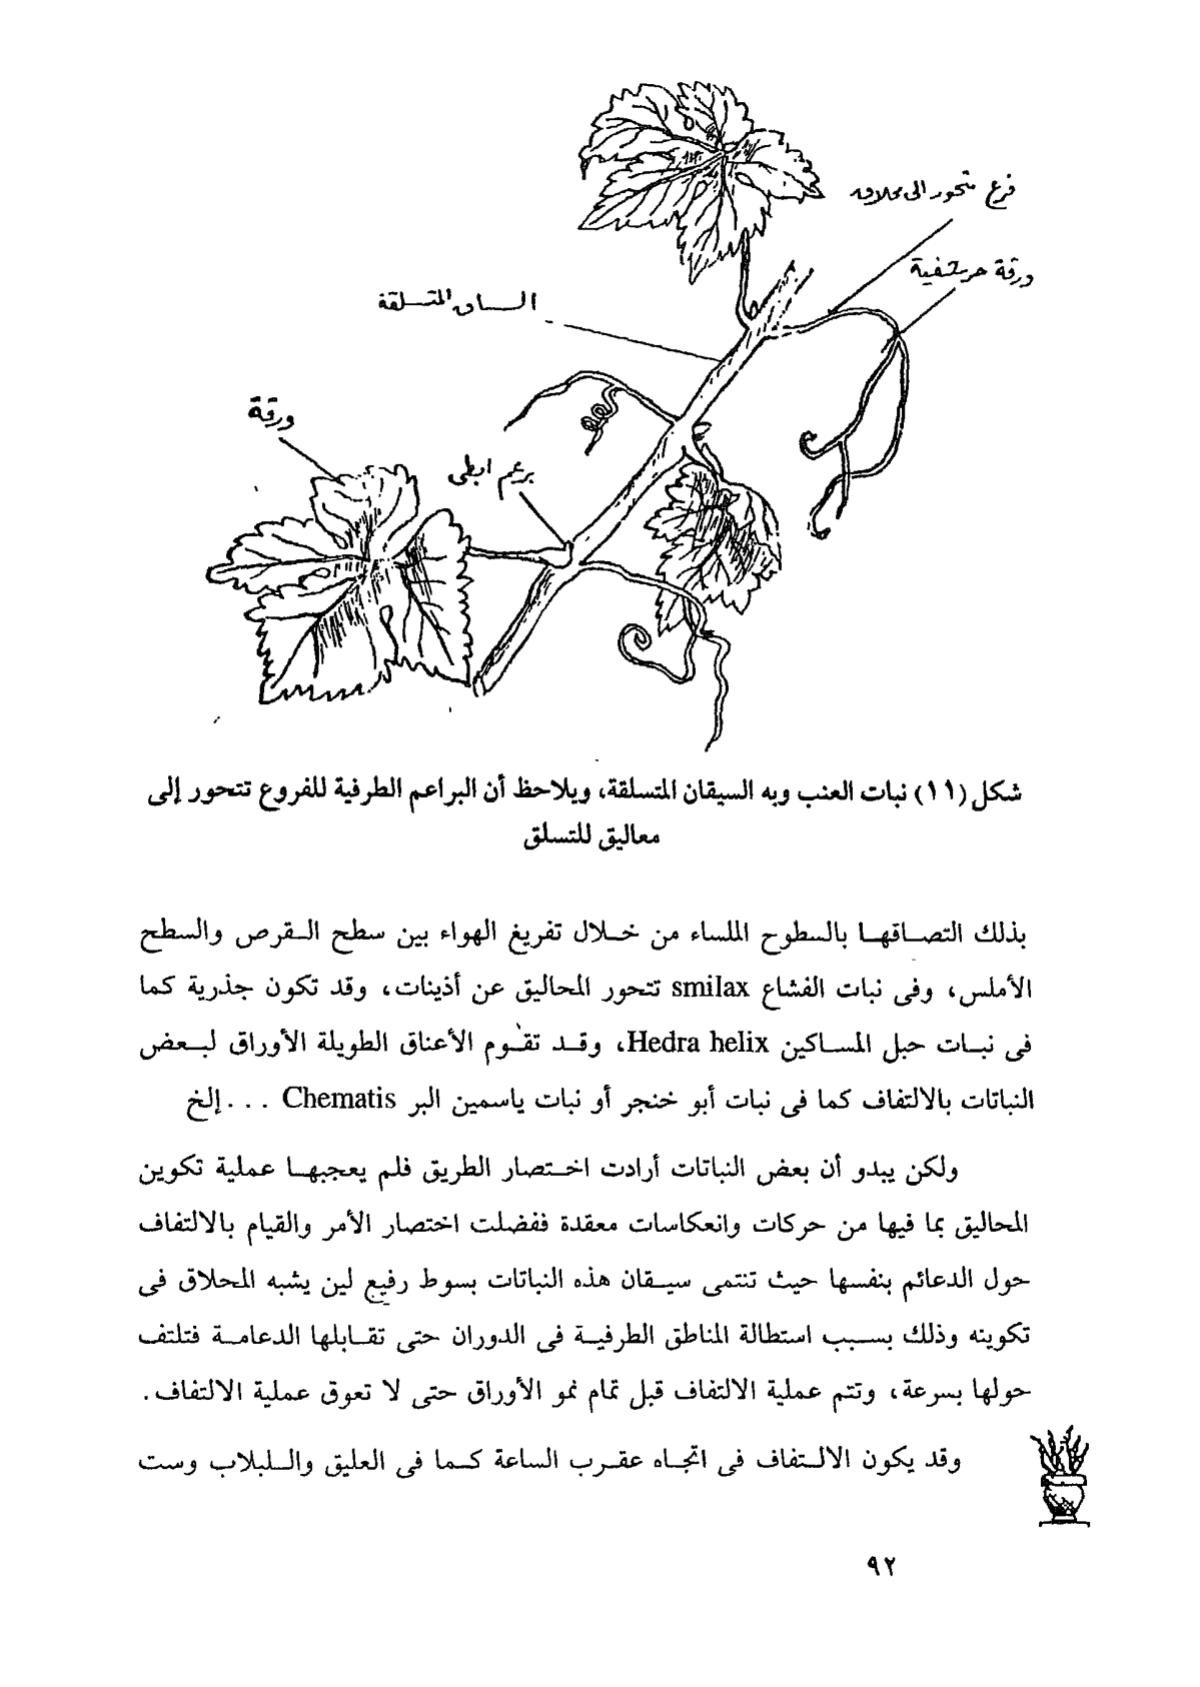 فرع متحور الى محلاق
ورقة حرشفية
الساق المتسلقة
ورقة
برعم ابطى
شكل (١١) نبات العنب وبه السيقان المتسلقة، ويلاحظ أن البراعم الطرفية للفروع تتحور إلى
معاليق للتسلق
بذلك التصاقها بالسطوح الملساء من خلال تفريغ الهواء بين سطح القرص والسطح
الأملس، وفى نبات الفشاع smilax تتحور المحاليق عن أذينات، وقد تكون جذرية كما
فى نبات حبل المساكين Hedra helix، وقد تقوم الأعناق الطويلة الأوراق لبعض
النباتات بالالتفاف كما فى نبات أبو خنجر أو نبات ياسمين البر Chematis ... إلخ
ولكن يبدو أن بعض النباتات أرادت اختصار الطريق فلم يعجبها عملية تكوين
المحاليق بما فيها من حركات وانعكاسات معقدة ففضلت اختصار الأمر والقيام بالالتفاف
حول الدعائم بنفسها حيث تنتمى سيقان هذه النباتات بسوط رفيع لين يشبه المحلاق فى
تكوينه وذلك بسبب استطالة المناطق الطرفية فى الدوران حتى تقابلها الدعامة فتلتف
حولها بسرعة، وتتم عملية الالتفاف قبل تمام نمو الأوراق حتى لا تعوق عملية الالتفاف.
وقد يكون الالتفاف فى اتجاه عقرب الساعة كما فى العليق واللبلاب وست
٩٢